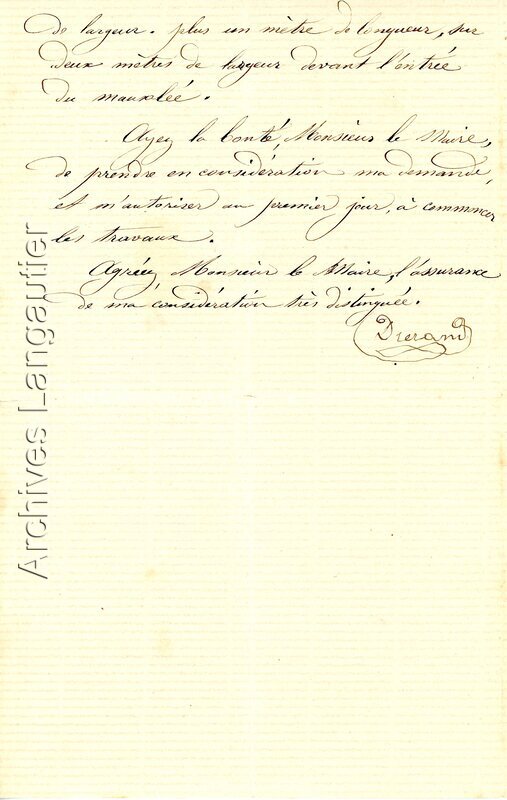 de largeur. plus un mètre de longueur, sur
deux mètres de largeur devant l'entrée
du mausolée.
Ayez la bonté, Monsieur le Maire,
de prendre en considération ma demande,
et m'autoriser au premier jour, à commencer
les travaux.
Agréez Monsieur le Maire, l'assurance
de ma considération très distinguée.
Durand
Archives Langautier